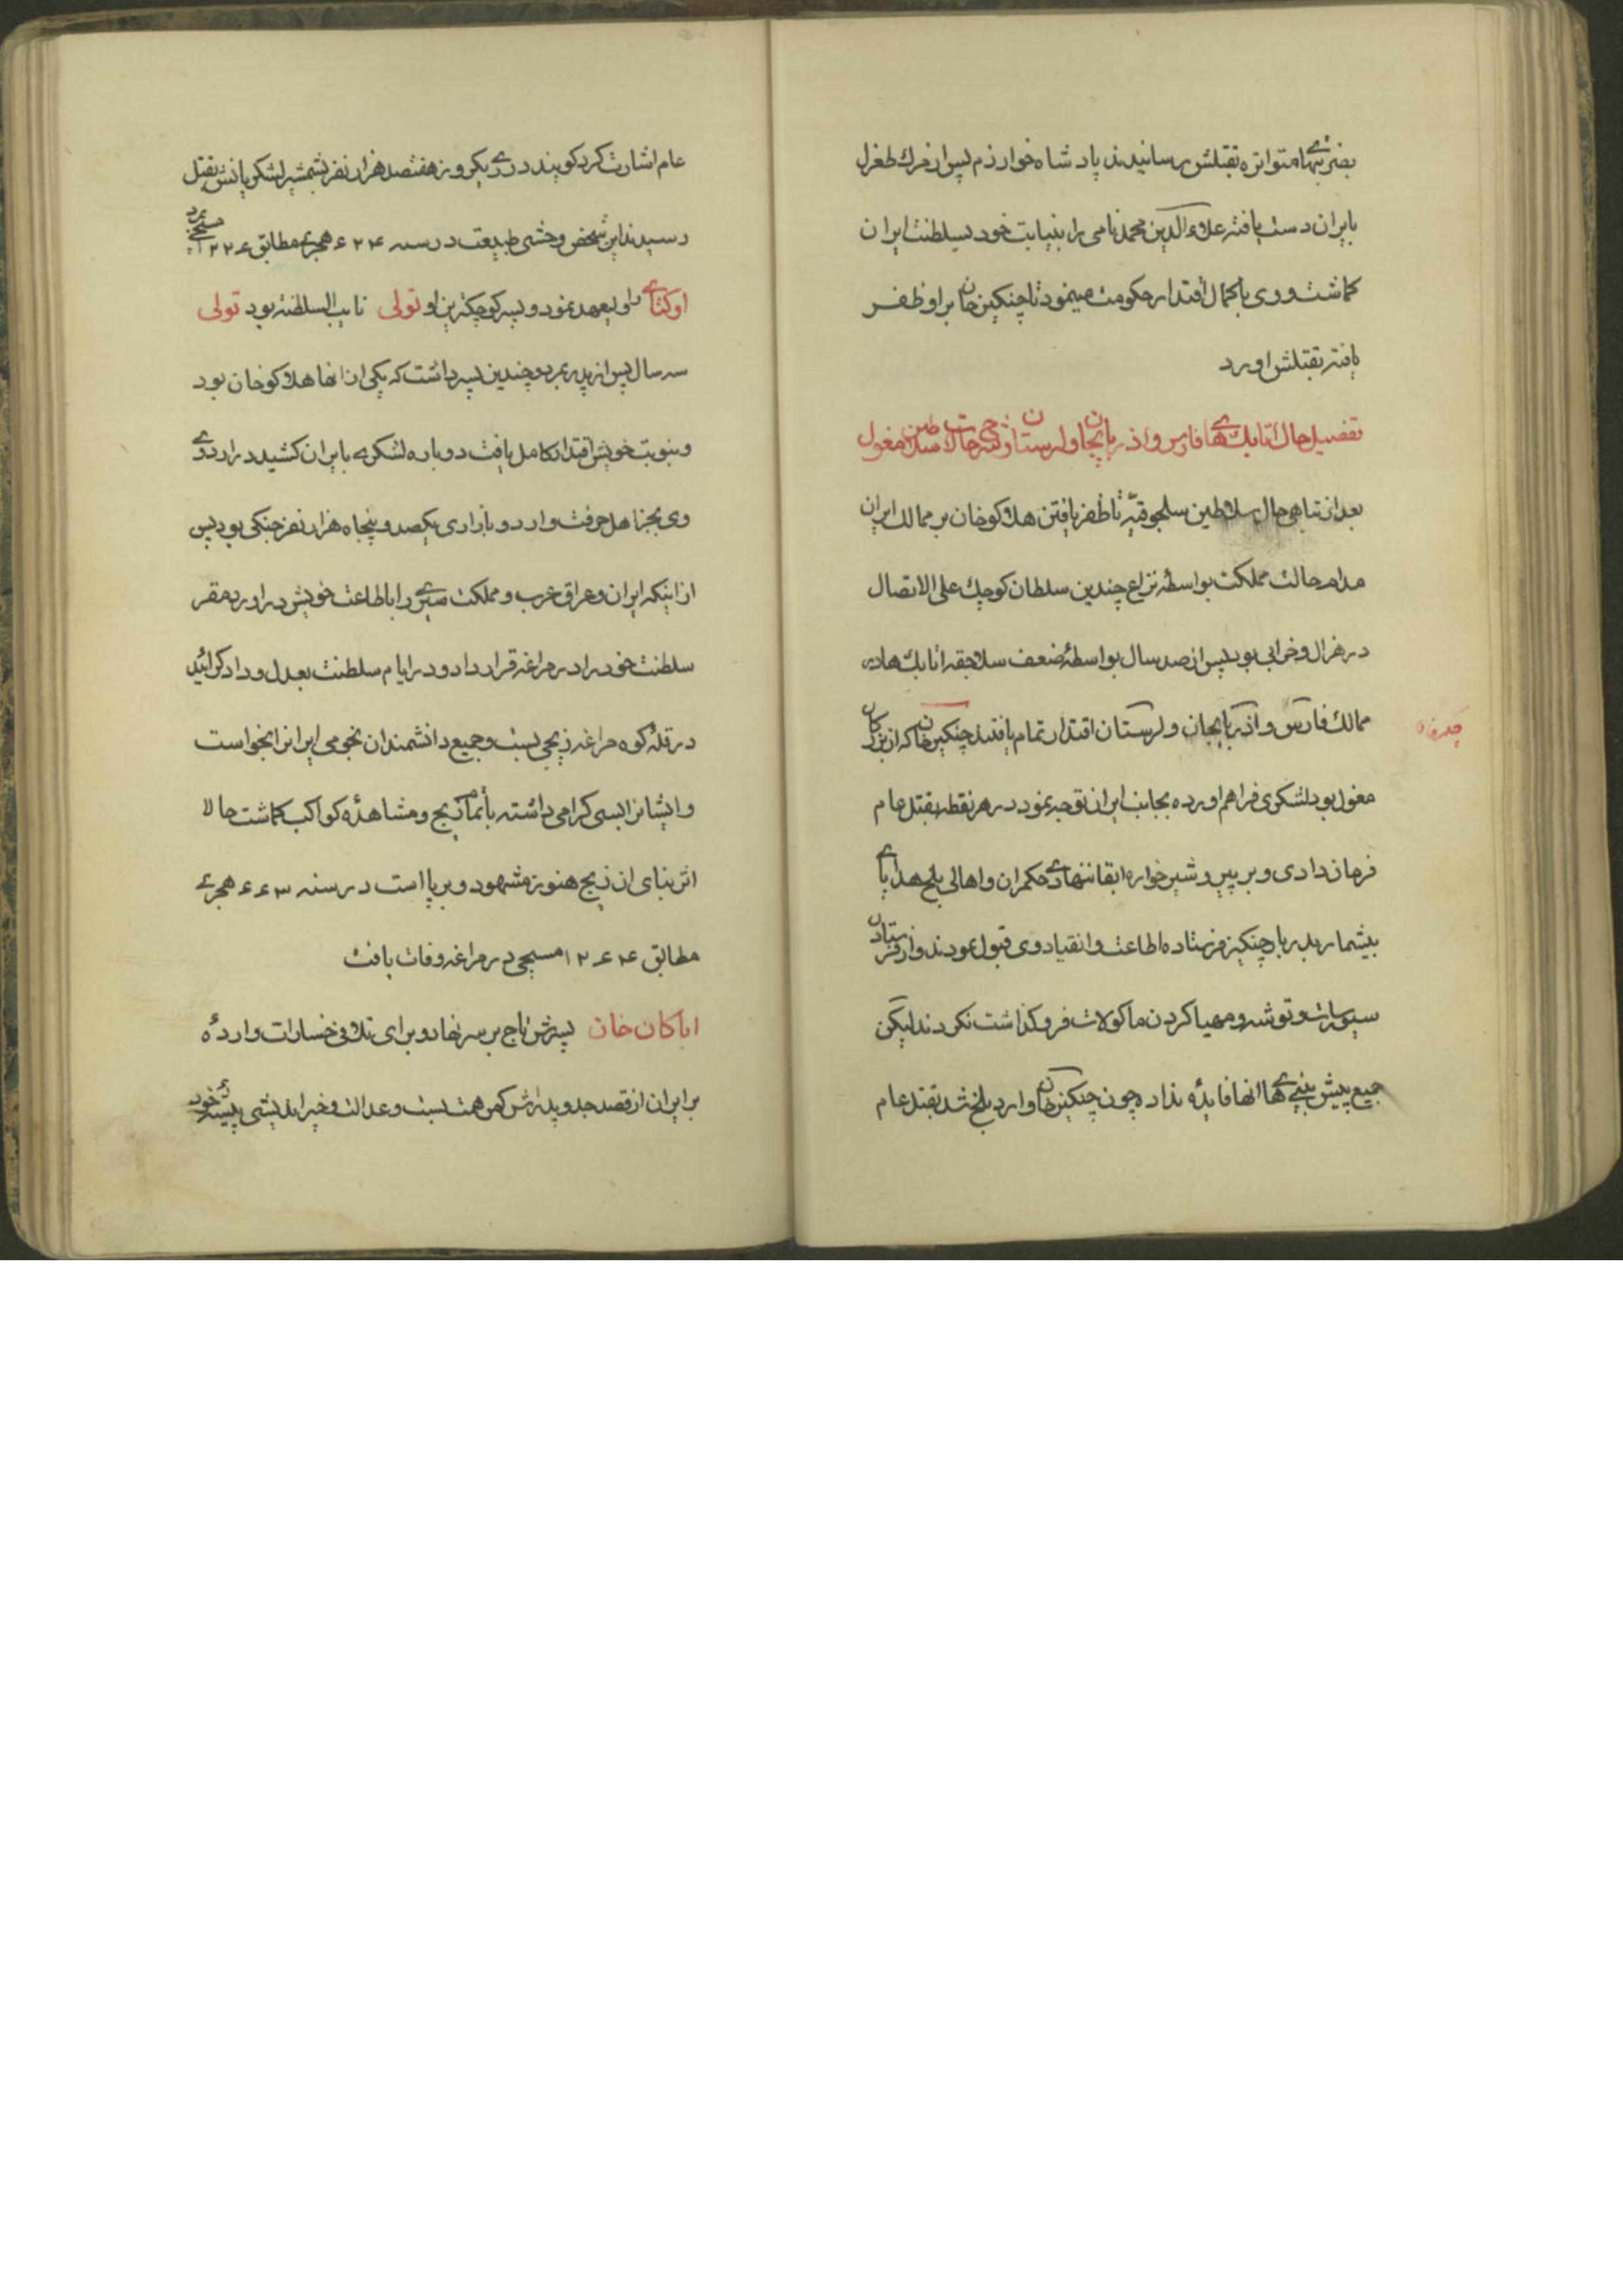 بضربتهای متواتره بقتلش رسانیدند پادشاه خوارزم پس از مرك طغرل
بایران دست یافته علاوء الدین محمد نامی را بنیابت خود بسلطنت ایران
کماشت و وی با کمال اقتدار حکومت مینمود تا چنکیز خان بر او ظفر
یافته بقتلش اورد
تفصیل حال اتابك های فارس و اذربایجان و لرستان و شرح حالات سلاطین مغول
بعد از تباهی حال سلاطین سلجوقیه تا ظفر یافتن هلاکوخان بر ممالك ایران
مدام حالت مملکت بواسطه نزاع چندین سلطان کوچك علی الاتصال
در هزال و خرابی بود پس از صد سال بواسطهٔ ضعف سلاجقه اتابك ها در
ممالك فارس و اذربایجان و لرستان اقتدار تمام یافتند چنکیز خان که از بزرکان
مغول بود لشکری فراهم اورده بجانب ایران توجه نمود در هر نقطه بقتل عام
فرمان دادی و بر پیر و شیر خواره ابقا ننهادی حکمران و اهالی بلخ هدایای
بیشمار بدربار چنکیز فرستاده اطاعت و انقیاد وی قبول نمودند و از فرستادن
سیورسات و توشه و مهیا کردن ماکولات فروکذاشت نکردند لیکن
جمیع پیش بینی های انها فایدهٔ نداد چون چنکیز خان وارد بلخ شد بقتل عام
عام اشارت کرد کویند در ری یکروز هفتصد هزار نفر بشمشیر لشکریانش بقتل
رسیدند این شخص وحشی طبیعت در سنه ۶۲۴ هجری مطابق ۱۲۲۶ مسیحی بمرد
اوکتای را ولیعهد نمود و پسر کوچکترین او تولی نایب السلطنه بود تولی
سه سال پس از پدر بمرد و چندین پسر داشت که یکی از انها هلاکوخان بود
و بنوبت خویش اقتدار کامل یافت دوباره لشکری بایران کشید در اردوی
وی بجز اهل حرفت و اردو بازاری یکصد و پنجاه هزار نفر جنکی بود پس
از اینکه ایران و عراق عرب و مملکت را باطاعت خویش دراورد مقر
سلطنت خود را در مراغه قرار داد و در ایام سلطنت بعدل و داد کرائید
در قلهٔ کوه مراغه زیجی ببست و جمیع دانشمندان نجومی ایرانرا بخواست
و ایشانرا بسی کرامی داشته باتمام زیج و مشاهدهٔ کواکب کماشت حالا
اثر بنای ان زیج هنوز مشهود و برپا است در سنه ۶۶۳ هجری
مطابق ۱۲۶۴ مسیحی در مراغه وفات یافت
اباکان خان پسرش تاج بر سر نهاد و برای تلافی خسارات واردهٔ
بر ایران از قصد جد و پدرش کمر همت ببست و عدالت و خیر اندیشی پیشنهاد خود